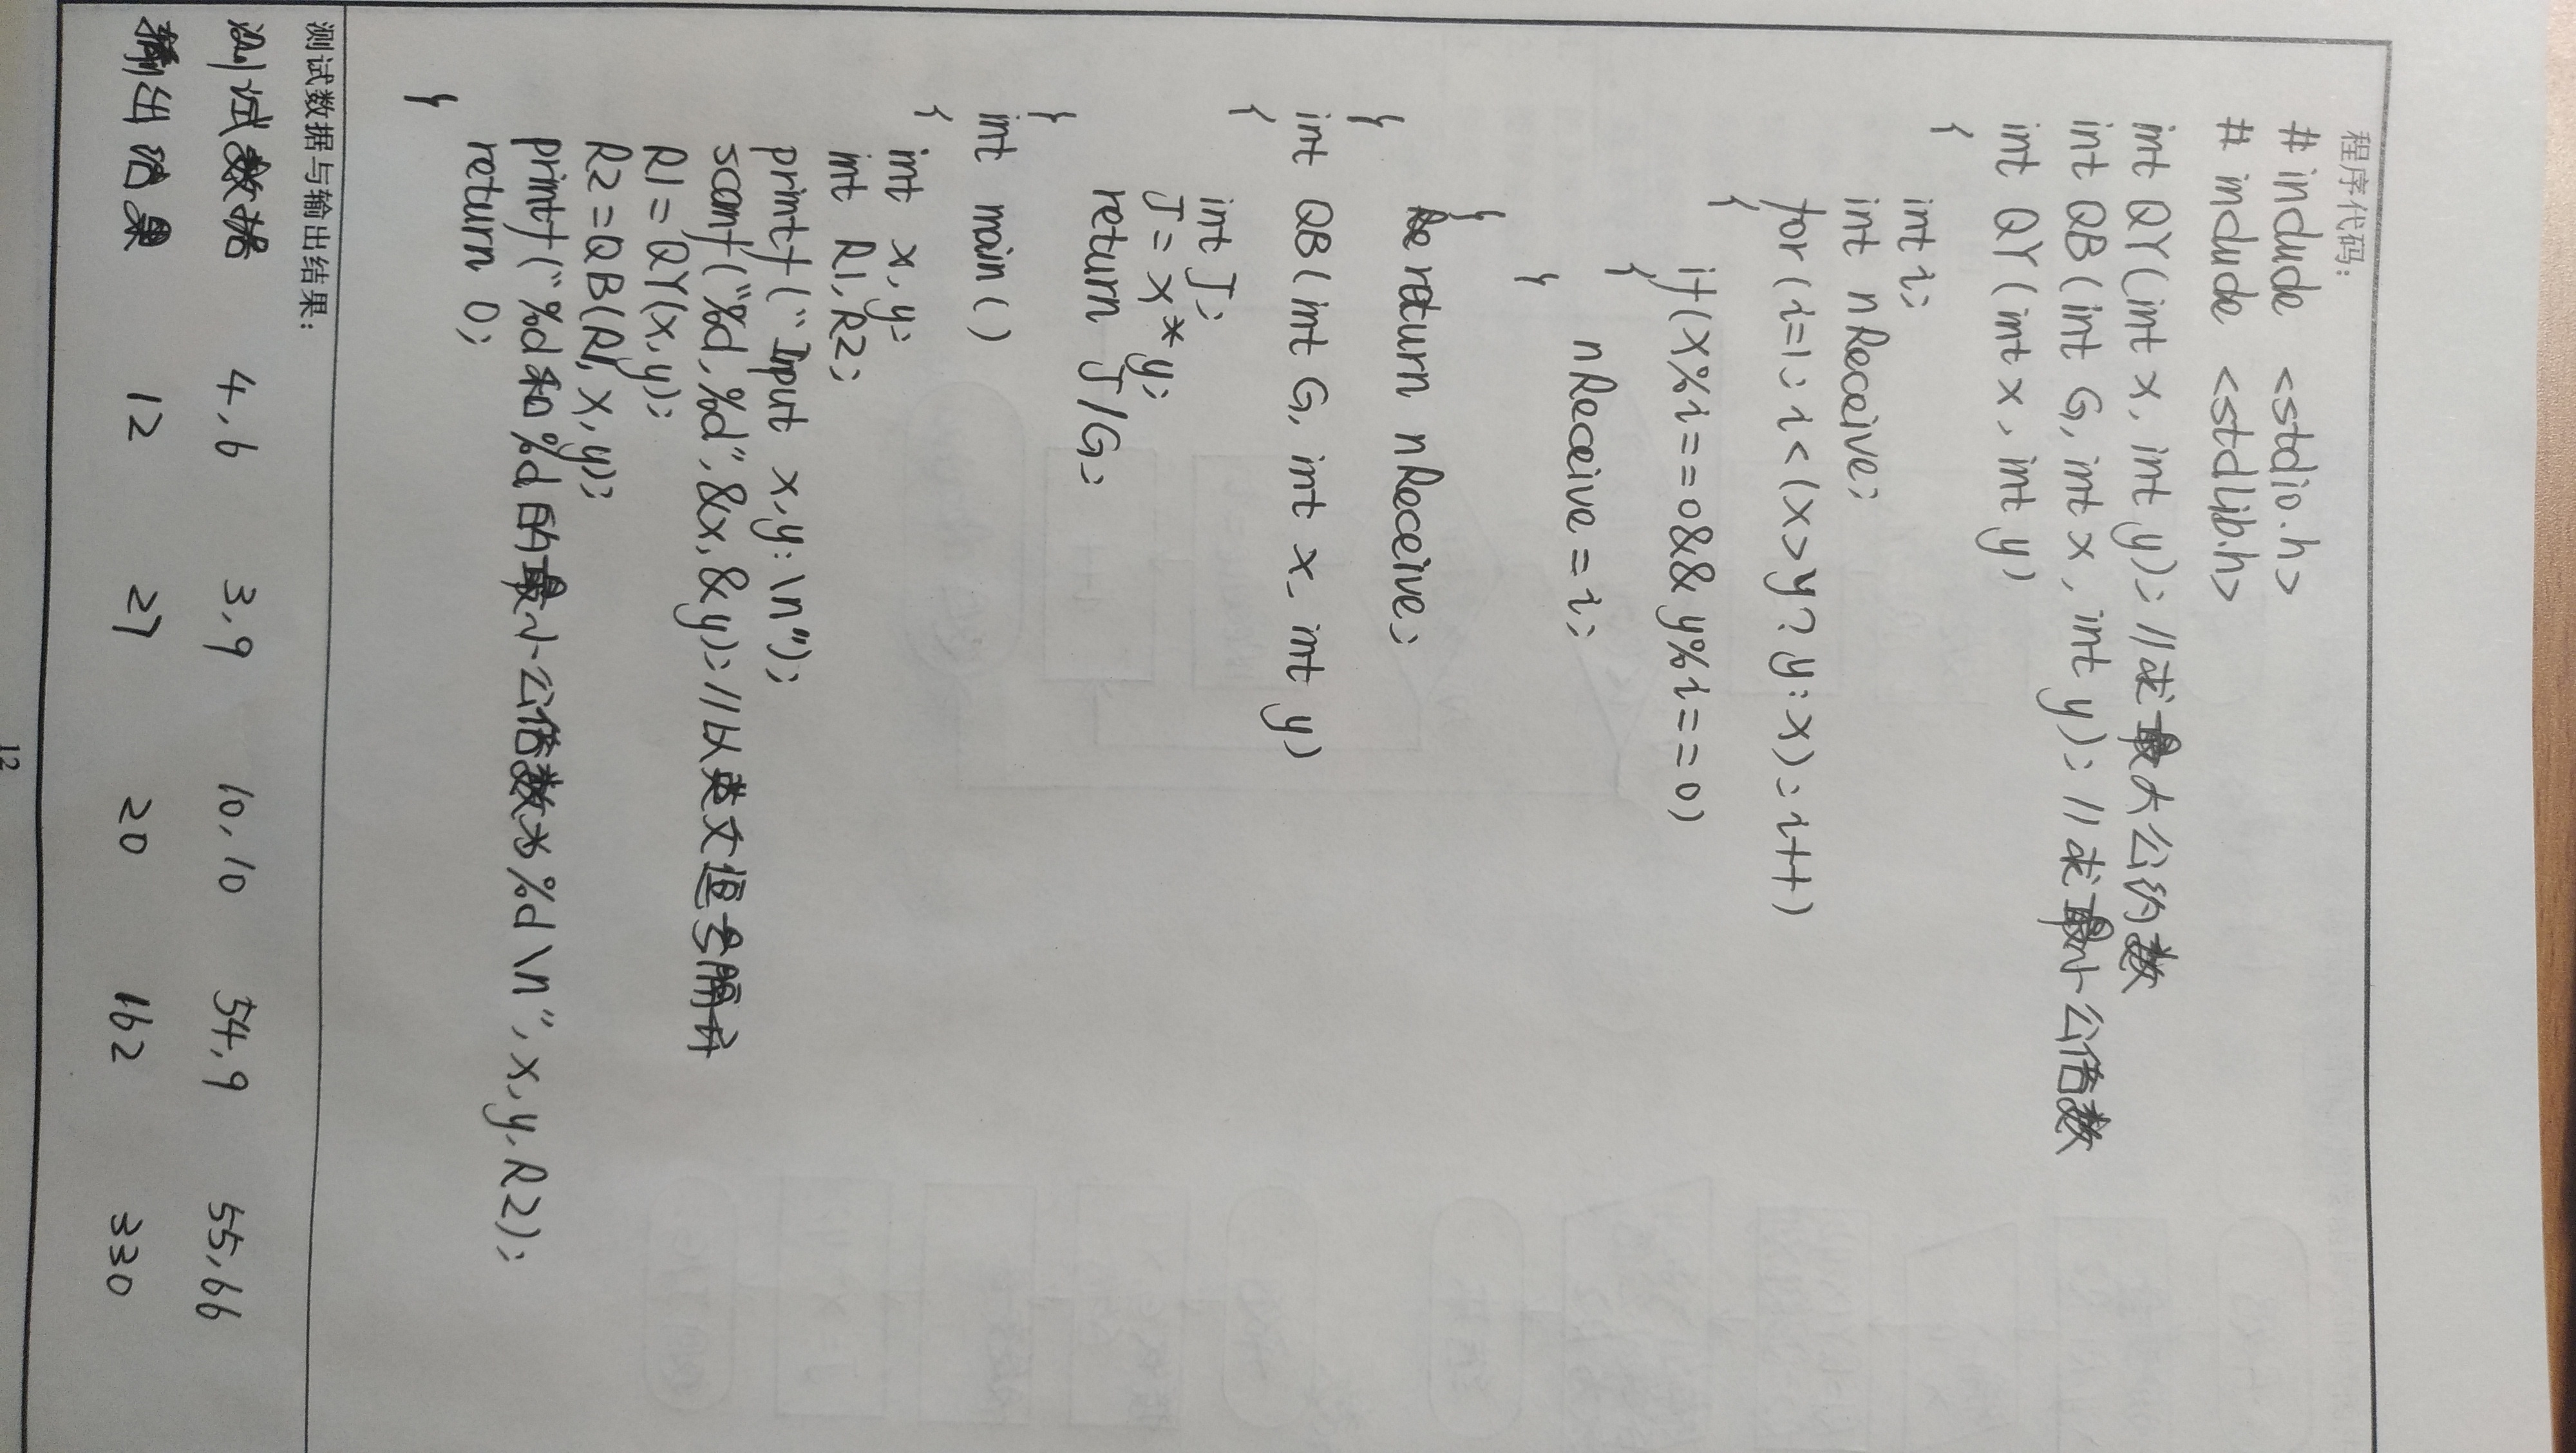 程序代码：
# include <stdio.h>
# include <stdLib.h>
int QY(int x, int y); //求最大公约数
int QB(int G, int x, int y); //求最小公倍数
int QY(int x, int y)
{
int i;
int nReceive;
for(i=1; i<(x>y?y:x); i++)
{
if(x%i==0&&y%i==0)
{
nReceive=i;
}
}
return nReceive;
}
int QB(int G, int x, int y)
{
int J;
J=x*y;
return J/G;
}
int main()
{
int x,y;
int R1,R2;
printf("Input x,y:\n");
scanf("%d,%d",&x,&y); //以英文逗号隔开
R1=QY(x,y);
R2=QB(R1,x,y);
printf("%d和%d的最小公倍数为%d\n",x,y,R2);
return 0;
}
测试数据与输出结果：
测试数据 4,6 3,9 10,10 54,9 55,66
输出结果 12 27 20 162 330
12